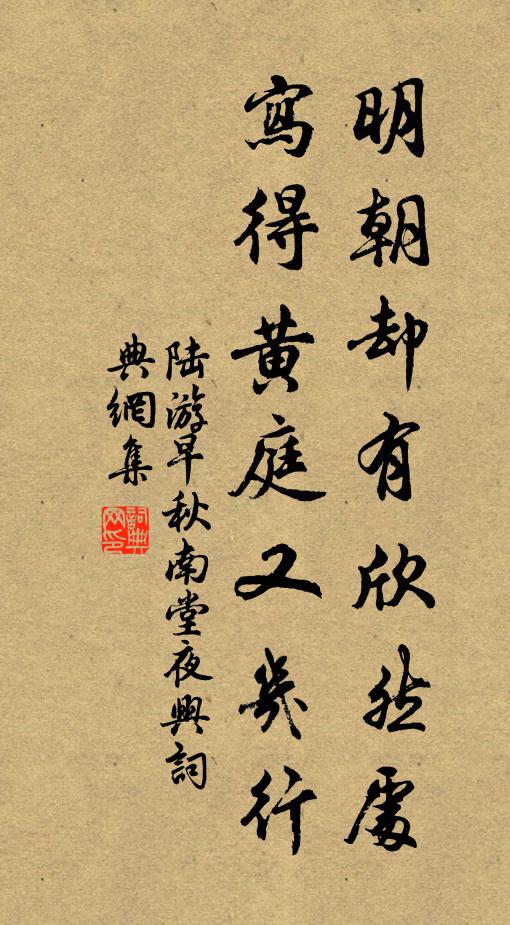 明朝却有欣然處
寫得黃庭又幾行
陆游早秋南堂夜興詞
典網集
詞典网印